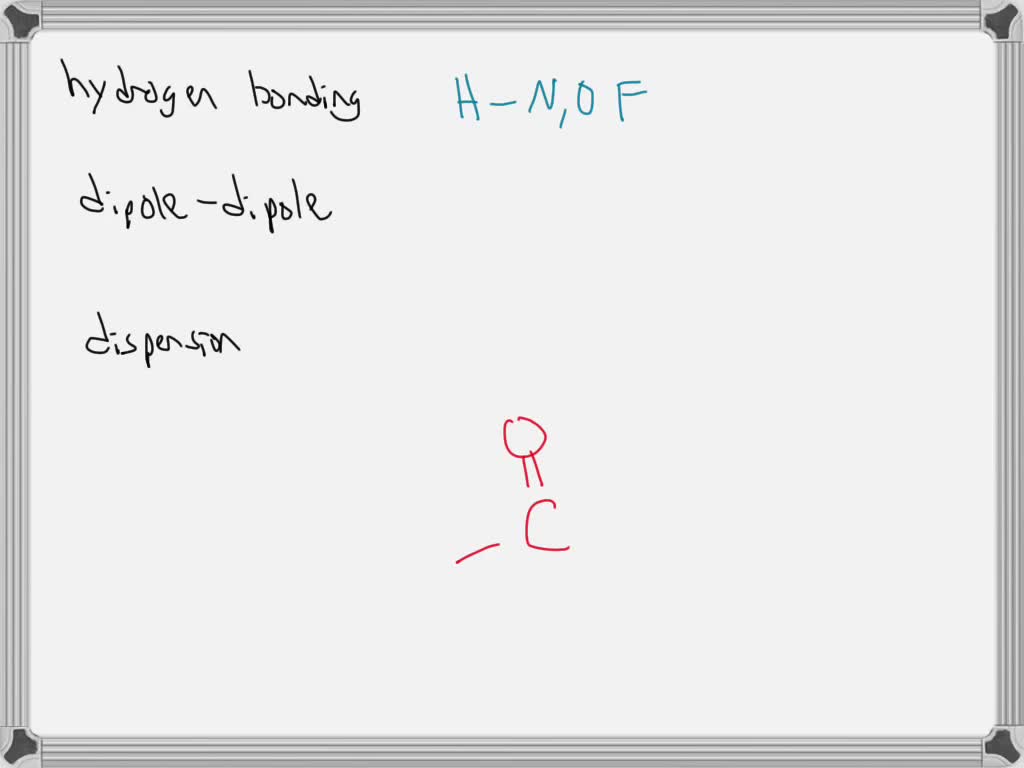 hydrogen bonding H – N, O F
dipole – dipole
dispersion
O
C